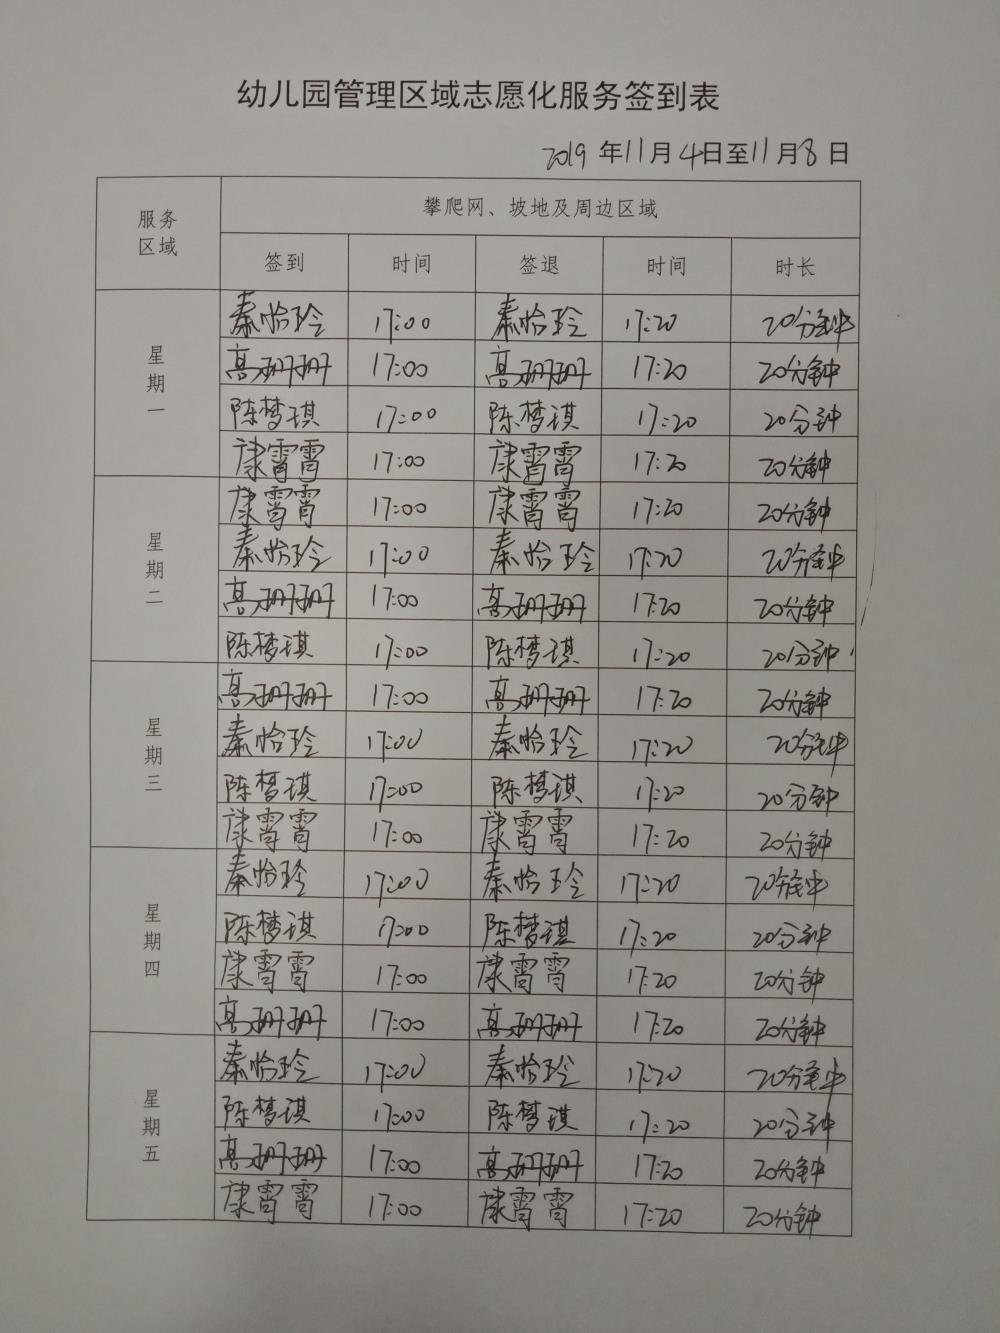 幼儿园管理区域志愿化服务签到表
2019 年 11 月 4 日至 11 月 8 日
服务区域 攀爬网、坡地及周边区域
签到 时间 签退 时间 时长
星期一
秦怡玲 17:00 秦怡玲 17:20 20分钟
高珊珊 17:00 高珊珊 17:20 20分钟
陈梦琪 17:00 陈梦琪 17:20 20分钟
康霄霄 17:00 康霄霄 17:20 20分钟
星期二
康霄霄 17:00 康霄霄 17:20 20分钟
秦怡玲 17:00 秦怡玲 17:20 20分钟
高珊珊 17:00 高珊珊 17:20 20分钟
陈梦琪 17:00 陈梦琪 17:20 20分钟
星期三
高珊珊 17:00 高珊珊 17:20 20分钟
秦怡玲 17:00 秦怡玲 17:20 20分钟
陈梦琪 17:00 陈梦琪 17:20 20分钟
康霄霄 17:00 康霄霄 17:20 20分钟
星期四
秦怡玲 17:00 秦怡玲 17:20 20分钟
陈梦琪 17:00 陈梦琪 17:20 20分钟
康霄霄 17:00 康霄霄 17:20 20分钟
高珊珊 17:00 高珊珊 17:20 20分钟
星期五
秦怡玲 17:00 秦怡玲 17:20 20分钟
陈梦琪 17:00 陈梦琪 17:20 20分钟
高珊珊 17:00 高珊珊 17:20 20分钟
康霄霄 17:00 康霄霄 17:20 20分钟